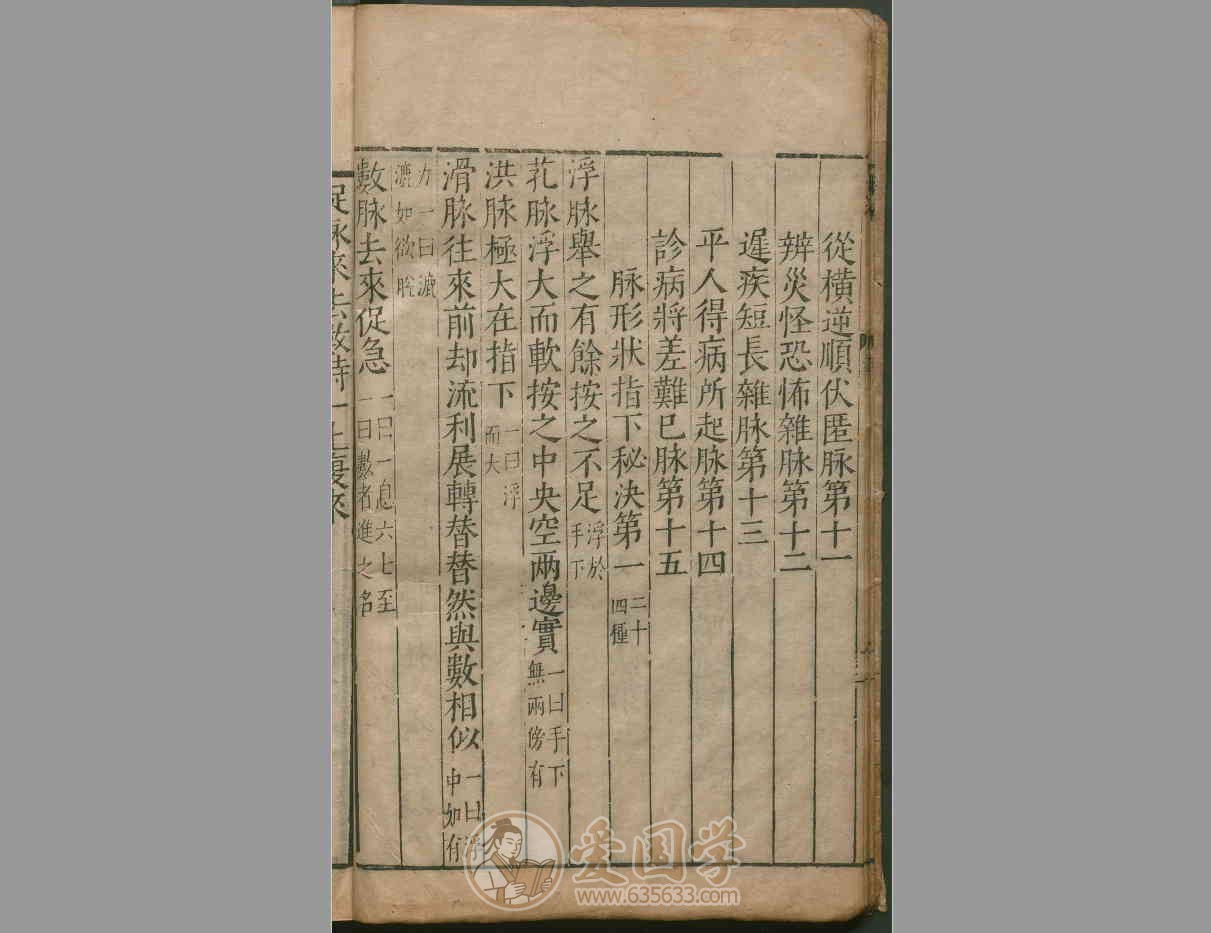 從橫逆順伏匿脉第十一
辨災怪恐怖雜脉第十二
遲疾短長雜脉第十三
平人得病所起脉第十四
診病將差難已脉第十五
脉形狀指下秘决第一 二十四種
浮脉舉之有餘按之不足 浮於手下
芤脉浮大而軟按之中央空兩邊實 一曰手下無兩傍有
洪脉極大在指下 一曰浮而大
滑脉往來前却流利展轉替替然與數相似 一曰浮中如有
力一曰漉漉如欲脫
數脉去來促急 一曰一息六七至一曰數者進之名
促脉來去數時一止復來
爱国学
www.635633.com